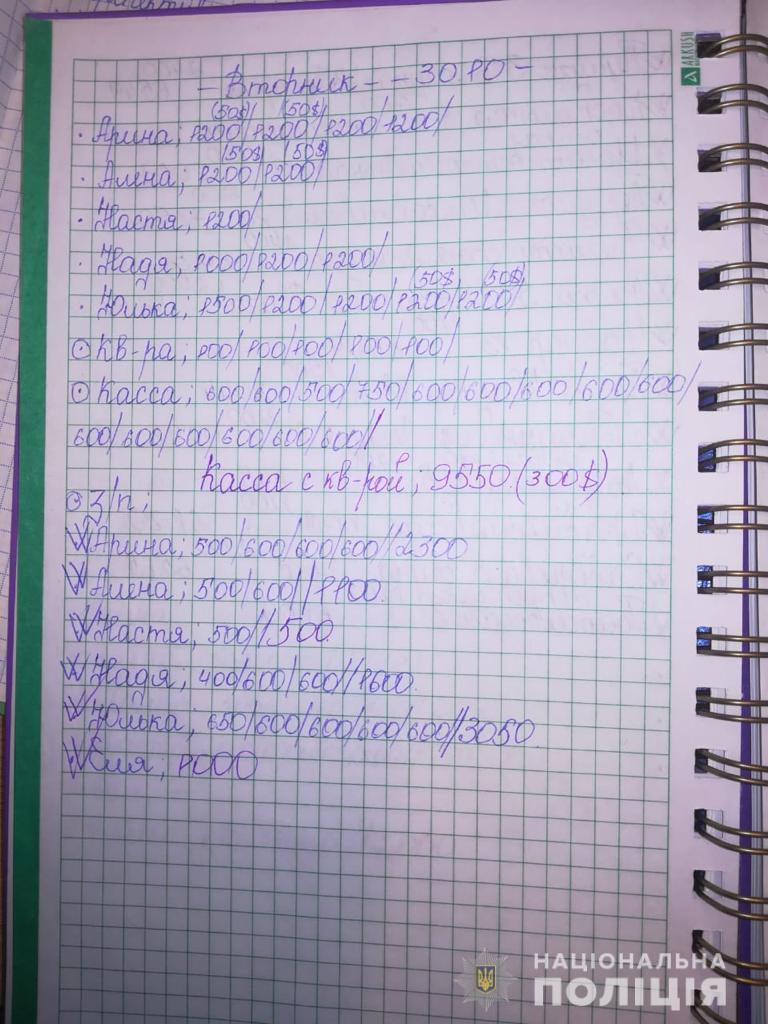 ARKUSH
- Вторник - - 30 10 -
(50$) (50$)
· Арина; 1200/1200/1200/1200/
(50$) (50$)
· Алена; 1200/1200/
· Настя; 1200/
· Надя; 1000/1200/1200/
(50$) (50$)
· Юлька; 1500/1200/1200/1200/1200/
⊙ кв-ра; 100/100/100/100/100/
⊙ Касса; 600/600/500/750/600/600/600/600/600/
600/600/600/600/600/600//
Касса с кв-рой; 9550 (300$)
⊙ З/п;
Арина; 500/600/600/600//2300
Алена; 500/600//1100
Настя; 500//500
Надя; 400/600/600//1600
Юлька; 650/600/600/600/600//3050
Еля; 1000
НАЦІОНАЛЬНА
ПОЛІЦІЯ